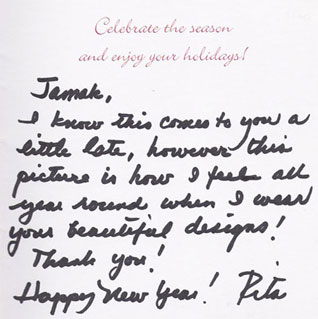 Celebrate the season
and enjoy your holidays!
Jamak,
I know this comes to you a
little late, however this
picture is how I feel all
year round when I wear
your beautiful designs!
Thank you!
Happy New Year! Rita